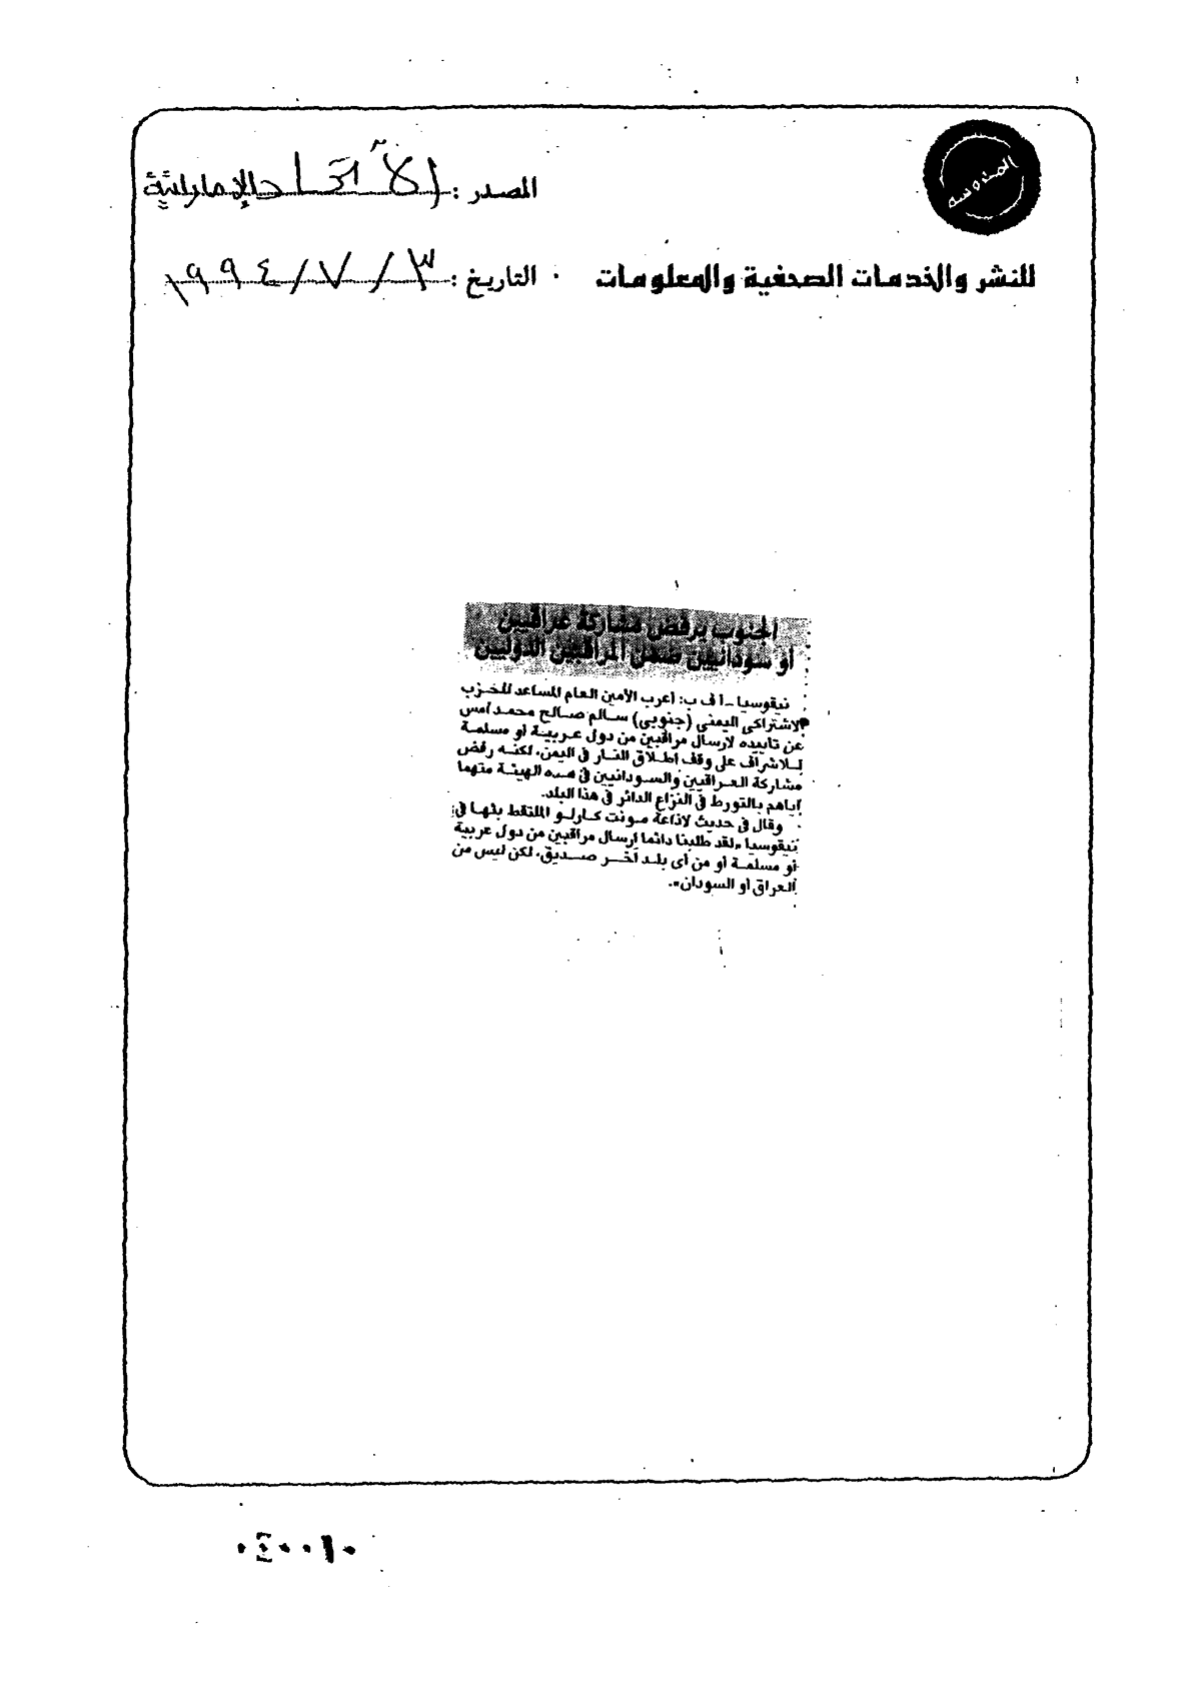 المصدر : الاتحاد الإماراتية
للنشر والخدمات الصحفية والمعلومات
التاريخ : ٣ / ٧ / ١٩٩٤
الجنوب يرفض مشاركة عراقيين
أو سودانيين ضمن المراقبين الدوليين
نيقوسيا ـ أ ف ب: أعرب الأمين العام المساعد للحزب
الاشتراكى اليمنى (جنوبى) سالم صالح محمد أمس
عن تأييده لارسال مراقبين من دول عربية أو مسلمة
للاشراف على وقف اطلاق النار فى اليمن، لكنه رفض
مشاركة العراقيين والسودانيين فى هذه الهيئة متهما
اياهم بالتورط فى النزاع الدائر فى هذا البلد.
وقال فى حديث لاذاعة مونت كارلو الملتقط بثها فى
نيقوسيا «لقد طلبنا دائما إرسال مراقبين من دول عربية
أو مسلمة أو من أى بلد آخر صديق، لكن ليس من
العراق أو السودان».